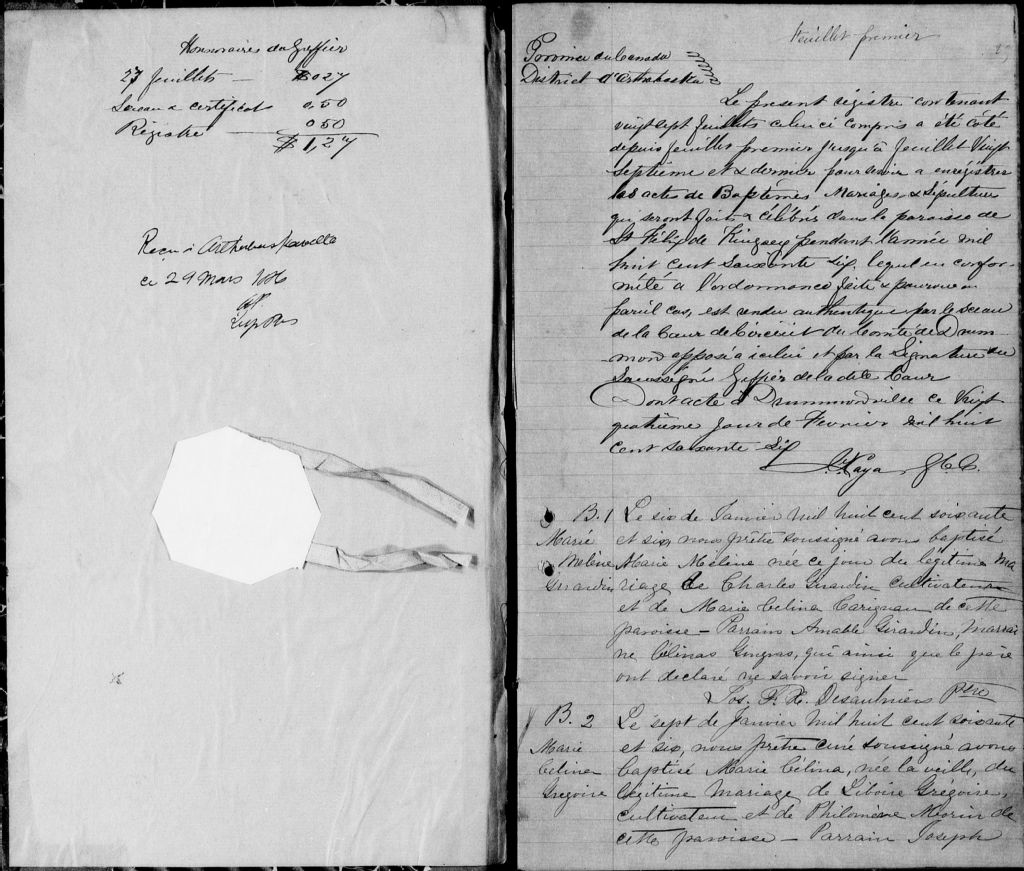 Honnoraires du Greffier
27 feuillets — $ 0 27
Sceau & certificat 0,50
Régistre — 0 50
$ 1,27
Recu à Arthabaskaville
ce 29 Mars 1866
Feuillet premier
Province du Canada
District d'Arthabaska
Le present régistre contenant
vingt sept feuillets celui ci compris a été côté
depuis feuillet premier jusqu'à feuillet Vingt
Septième et & dernier pour servir a enrégistrer
les actes de Baptêmes Mariages & Sépultures
qui seront faits & célébrés dans la paroisse de
St Félix de Kingsey pendant l'année mil
huit cent soixante Six lequel en confor-
mité à l'ordonnance faite & pourvue en
pareil cas, est rendu authentique par le sceau
de la Cour de Circuit du Comté de Drum-
mond apposé a icelui et par la Signature du
Soussigné Greffier de la dite Cour
Dont acte à Drummondville ce Vingt
quatrième jour de Fevrier mil huit
cent soixante Six
G.C.C.
B. 1 Le six de Janvier mil huit cent soixante
Marie et six, nous prêtre soussigné avons baptisé
Meline Marie Meline née ce jour du légitime ma
Girardin riage de Charles Girardin cultivateur
et de Marie Celina Carignan de cette
paroisse — Parrain Amable Girardin, marrai
ne Célinas Gingras, qui ainsi que le père
ont declaré ne savoir signer
Jos. F. X. Desaulniers Ptre
B. 2 Le sept de Janvier mil huit cent soixante
Marie et six, nous prêtre curé soussigné avons
Celina baptisé Marie Célina, née la veille, du
Gregoire légitime mariage de Liboire Grégoire,
cultivateur et de Philomène Morin de
cette paroisse — Parrain Joseph